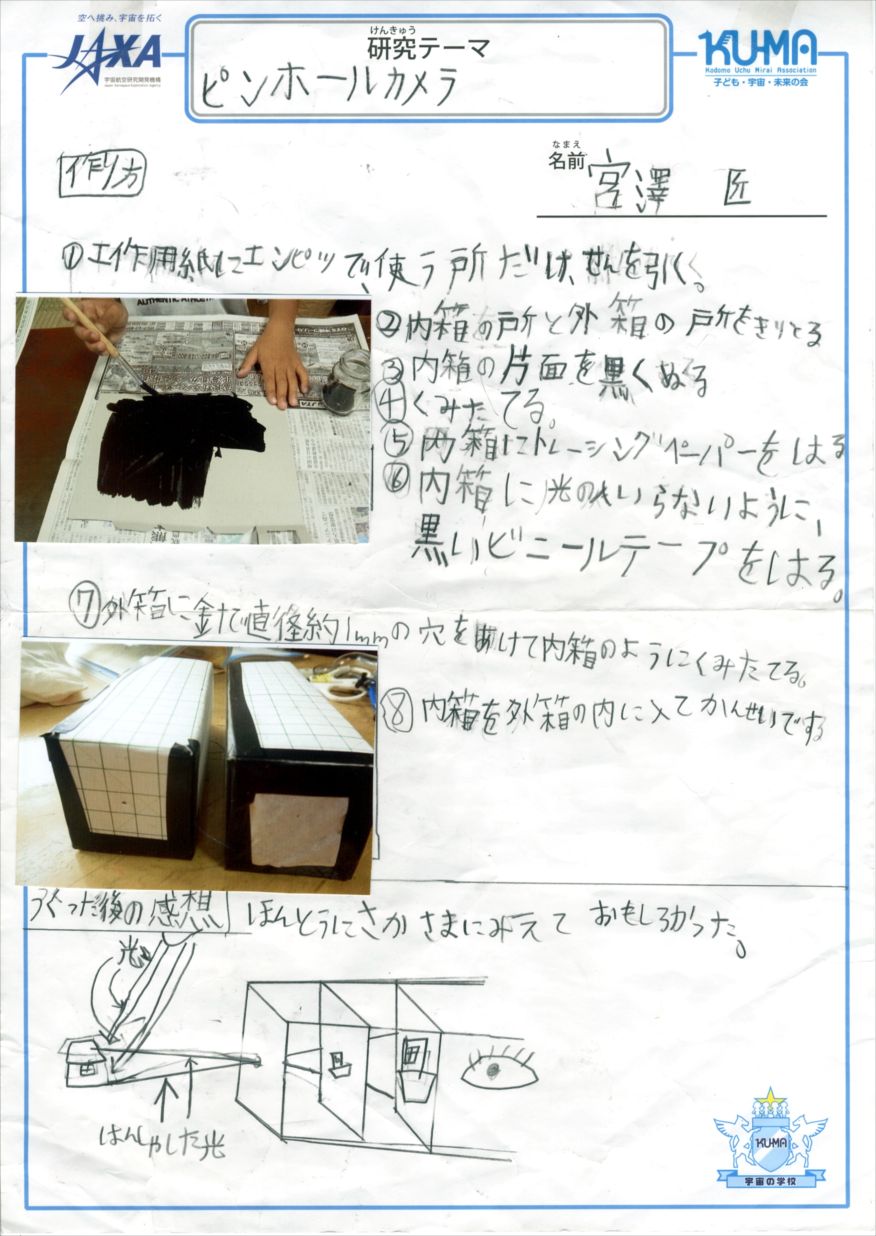 空へ挑み、宇宙を拓く
JAXA
宇宙航空研究開発機構
Japan Aerospace Exploration Agency
けんきゅう
研究テーマ
ピンホールカメラ
KU-MA
Kodomo Uchu Mirai Association
子ども・宇宙・未来の会
作り方
なまえ
名前
宮澤 匠
①工作用紙にエンピツで、使う所だけ、せんを引く。
②内箱の所と外箱の所をきりとる
③内箱の片面を黒くぬる
④くみたてる。
⑤内箱にトレーシングペーパーをはる
⑥内箱に光のはいらないように、
黒いビニールテープをはる。
⑦外箱に金で直径約1mmの穴をあけて内箱のようにくみたてる。
⑧内箱を外箱の内に入てかんせいです
AUTHENTIC ATHLETIC
つくった後の感想
ほんとうにさかさまにみえておもしろかった。
光
はんしゃした光
KU-MA
宇宙の学校